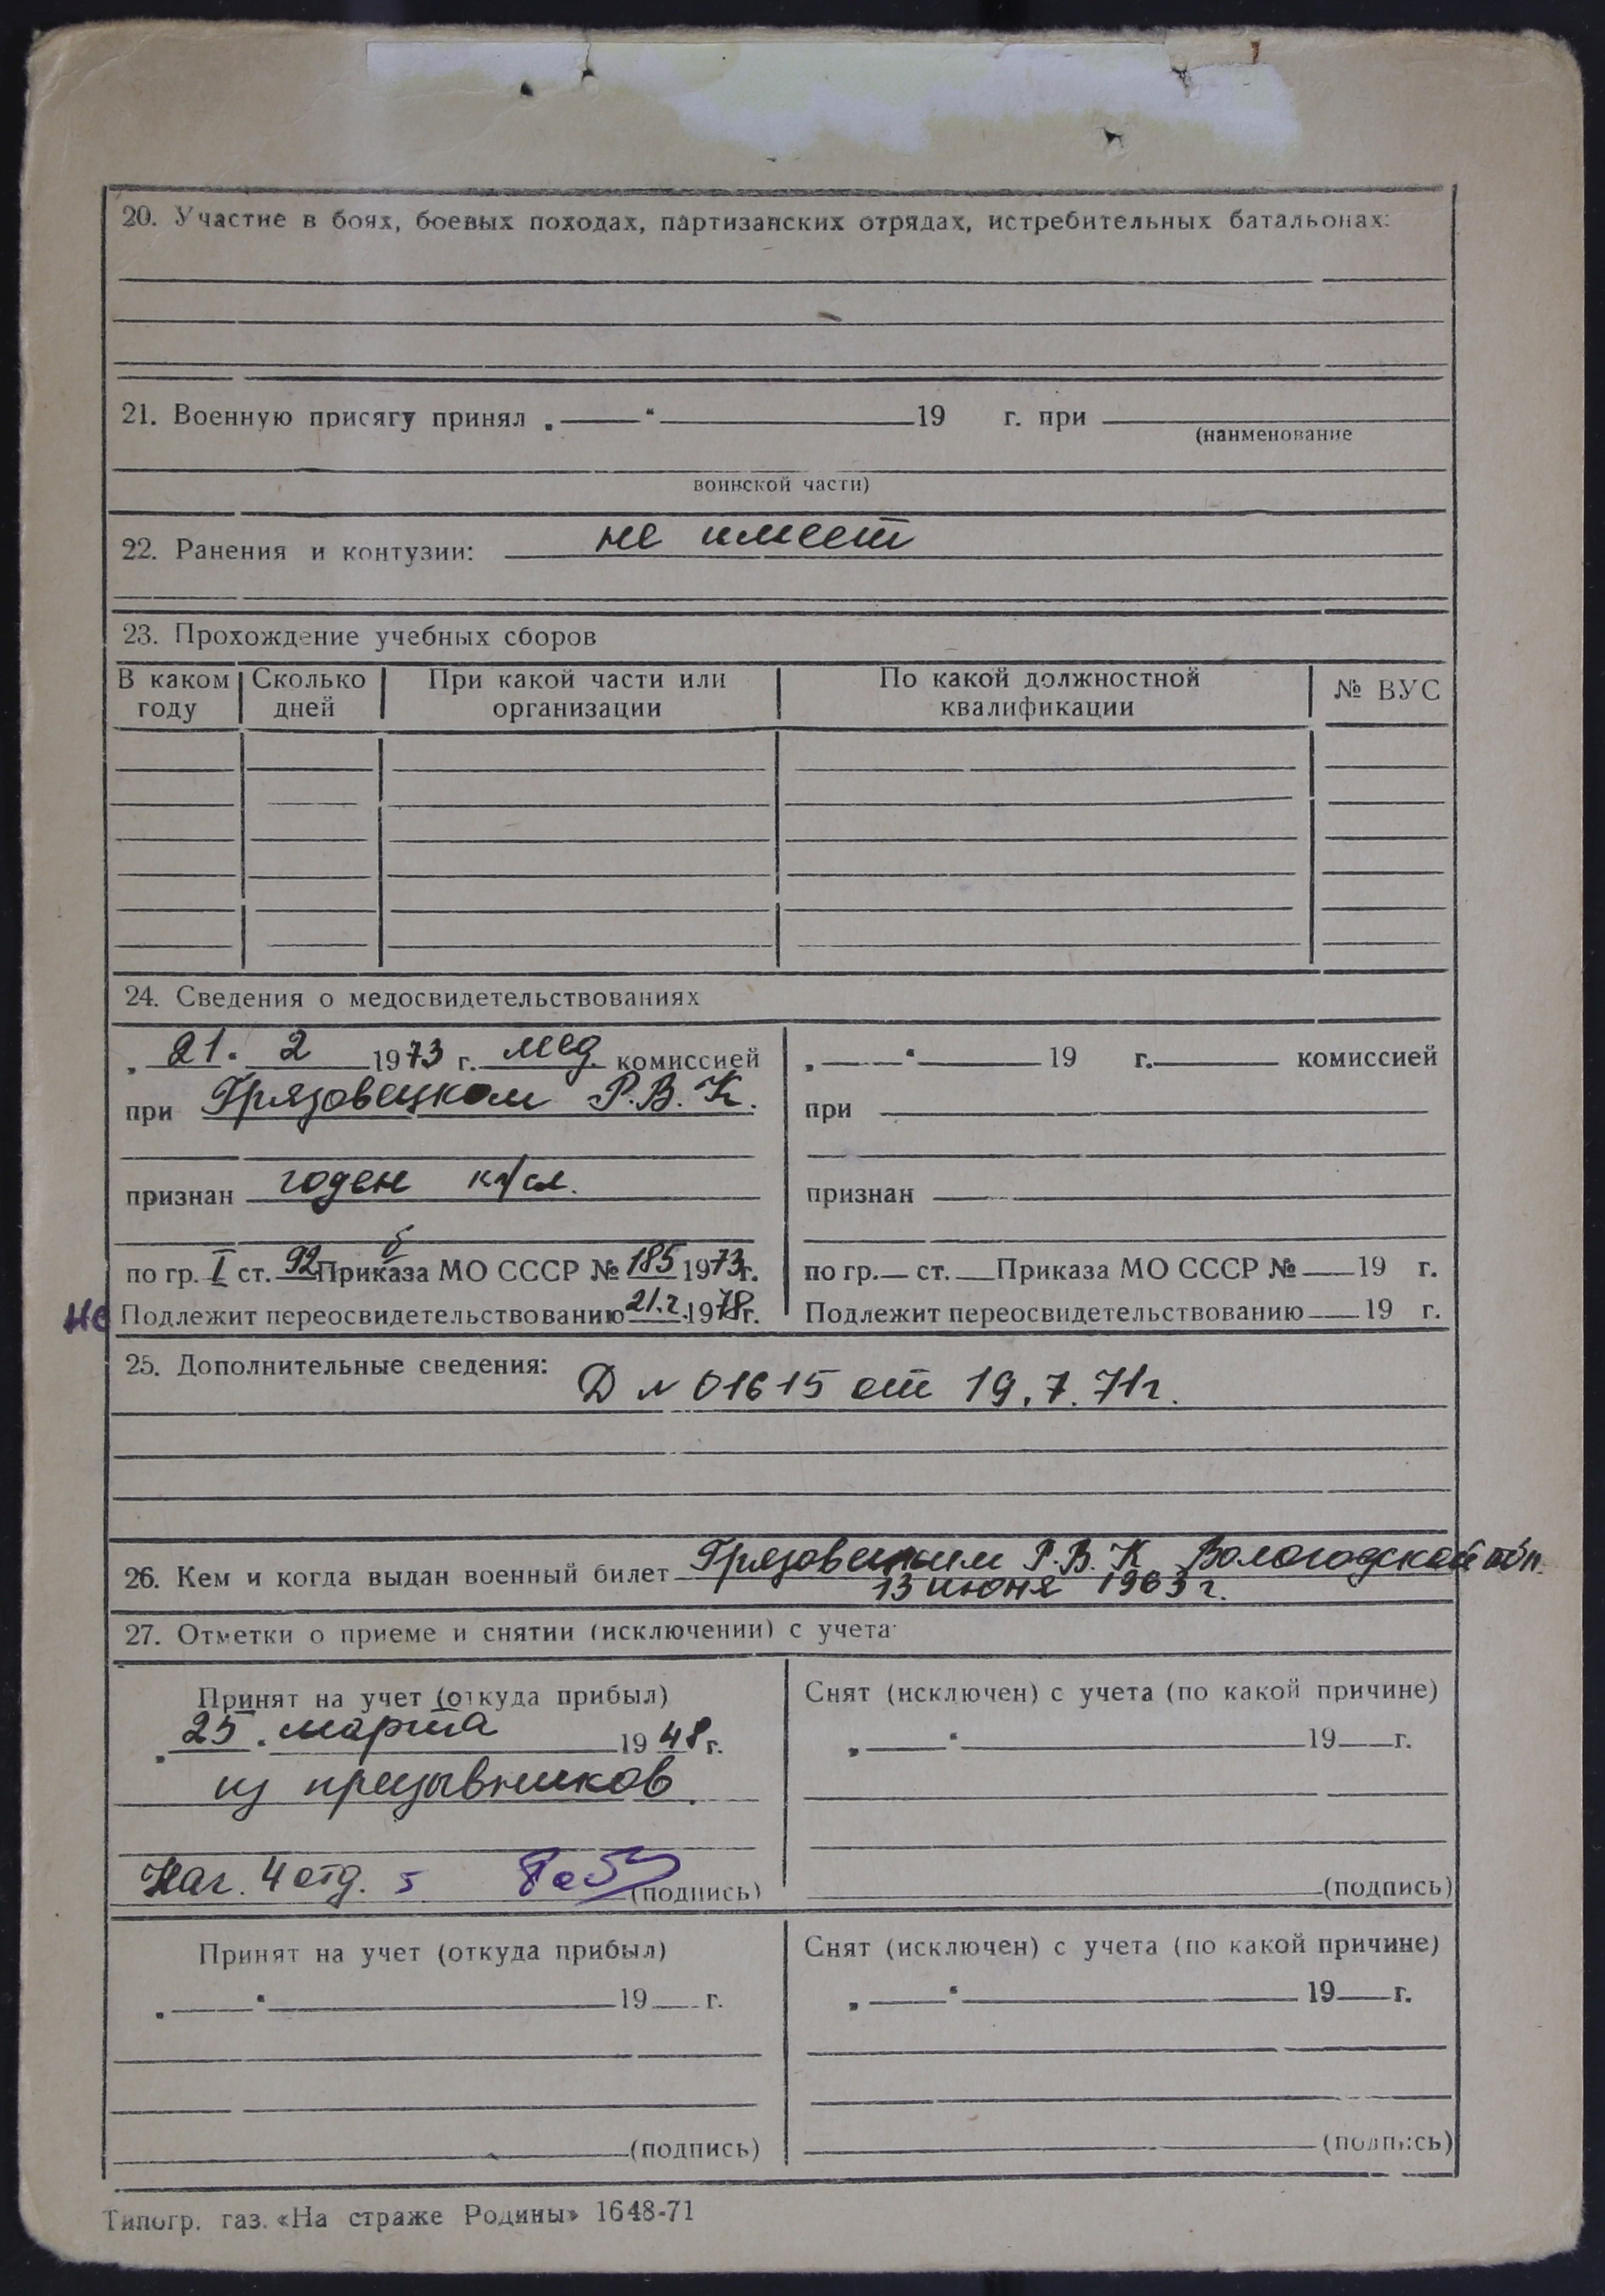 20. Участие в боях, боевых походах, партизанских отрядах, истребительных батальонах:
21. Военную присягу принял „ — “ — 19 г. при
(наименование
воинской части)
22. Ранения и контузии: не имеет
23. Прохождение учебных сборов
В каком году Сколько дней При какой части или организации По какой должностной квалификации № ВУС
24. Сведения о медосвидетельствованиях
21. 2 1973 г. мед. комиссией
при Грязовецком Р.В.К.
признан годен к н/сл.
б
по гр. I ст. 92 Приказа МО СССР № 185 1973г.
не Подлежит переосвидетельствованию 21.2.1978г.
„ — “ — 19 г. — комиссией
при
признан
по гр. — ст. — Приказа МО СССР № — 19 г.
Подлежит переосвидетельствованию — 19 г.
25. Дополнительные сведения: Д № 01615 от 19.7.71г.
26. Кем и когда выдан военный билет Грязовецким Р.В.К Вологодской обл.
13 июня 1963 г.
27. Отметки о приеме и снятии (исключении) с учета:
Принят на учет (откуда прибыл)
„ 25. марта 1948 г.
из призывников.
Нач. 4 отд. (подпись)
Снят (исключен) с учета (по какой причине)
„ — “ — 19 — г.
(подпись)
Принят на учет (откуда прибыл)
„ — “ — 19 — г.
(подпись)
Снят (исключен) с учета (по какой причине)
„ — “ — 19 — г.
(подпись)
Типогр. газ. «На страже Родины» 1648-71